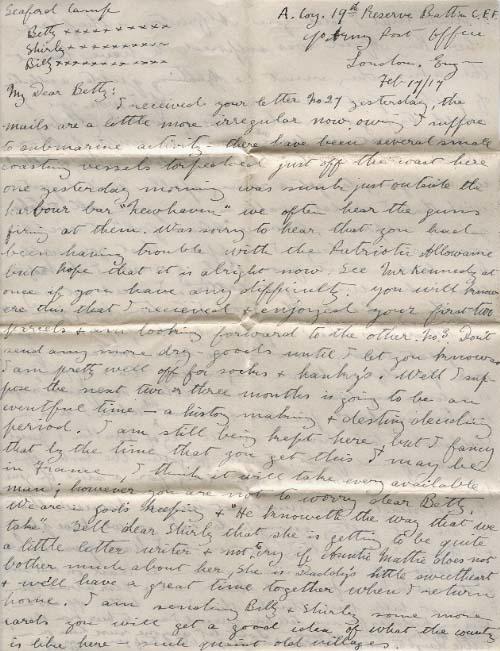 Seaford Camp
Betty x x x x x x x x
Shirly x x x x x x x x x
Billy x x x x x x x x x
A. Coy. 19th Reserve Batt'n C.E.F.
Army Post Office
London, Eng—
Feb 17/17
My Dear Betty:
I received your letter No 27 yesterday, the
mails are a little more irregular now owing I suppose
to submarine activity. there have been several small
coasting vessels torpedoed just off the coast here
one yesterday morning was sunk just outside the
harbour bar "Newhaven" we often hear the guns
firing at them. Was sorry to hear that you had
been having trouble with the Patriotic Allowance
but hope that it is alright now. See Mr Kennedy at
once if you have any difficulty. you will know
ere this that I received & enjoyed your first two
parcels & am looking forward to the other. No 3. Don't
send any more dry-goods until I let you know as
I am pretty well off for socks & hanky's. Well I sup-
pose the next two or three months is going to be an
eventful time — a history making & destiny deciding
period. I am still being kept here but I fancy
that by the time that you get this I may be
in France, I think it will take every available
man; however you are not to worry dear Betty,
We are in gods keeping & "He knoweth the way that we
take". Tell dear Shirly that she is getting to be quite
a little letter writer & not if Auntie Mattie does not
bother much about her, She is Daddy's little sweetheart
& we'll have a great time together when I return
home. I am sending Billy & Shirly some more
cards you will get a good idea of what the country
is like here — such quaint old villages.